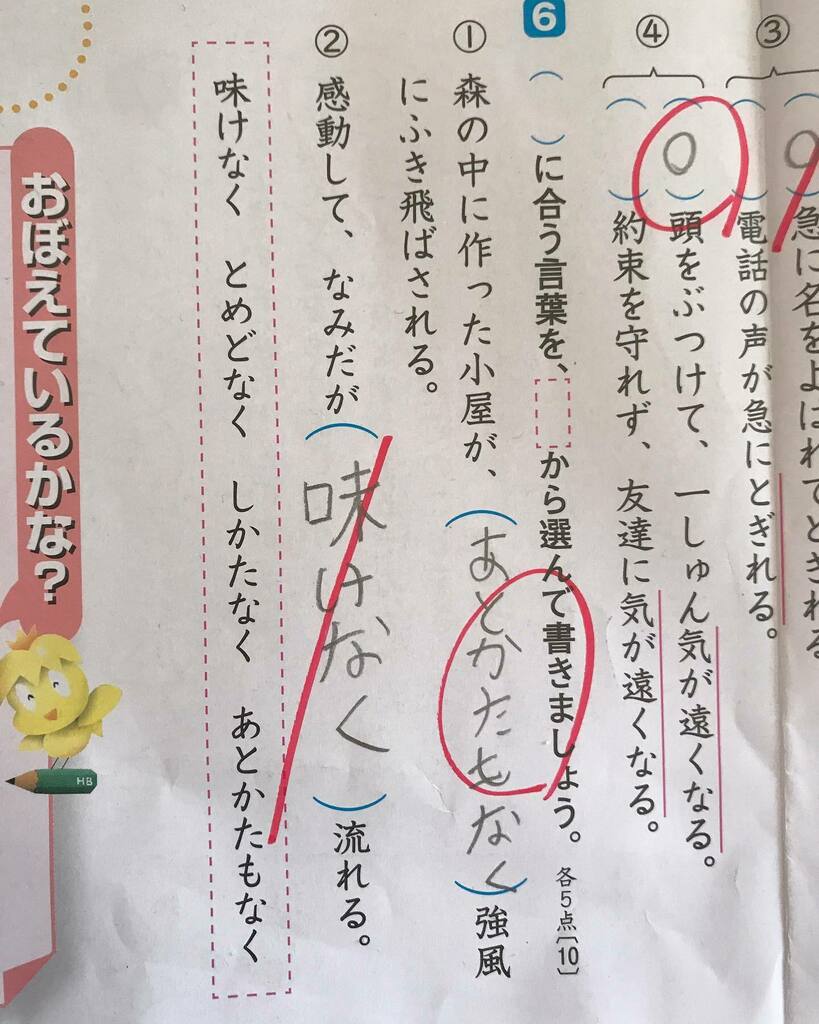 ③
急に名をよばれてとぎれる
電話の声が急にとぎれる。
④
頭をぶつけて、一しゅん気が遠くなる。
約束を守れず、友達に気が遠くなる。
6 （ ）に合う言葉を、から選んで書きましょう。各5点〔10〕
① 森の中に作った小屋が、（あとかたもなく）強風
にふき飛ばされる。
② 感動して、なみだが（味けなく）流れる。
味けなく とめどなく しかたなく あとかたもなく
おぼえているかな？
HB